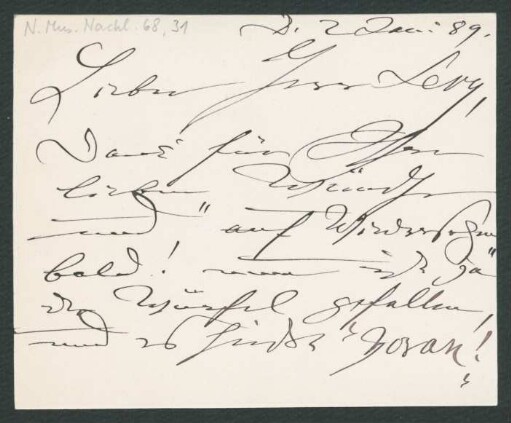 N. Mus. Nachl. 68, 31
D. 2 Jan: 89.
Lieber Herr Levy!
Dank für Ihre
lieben Wünsche
und "auf Wiedersehen
bald! nun ist ja
der Würfel gefallen,
und es heißt "Voran!"